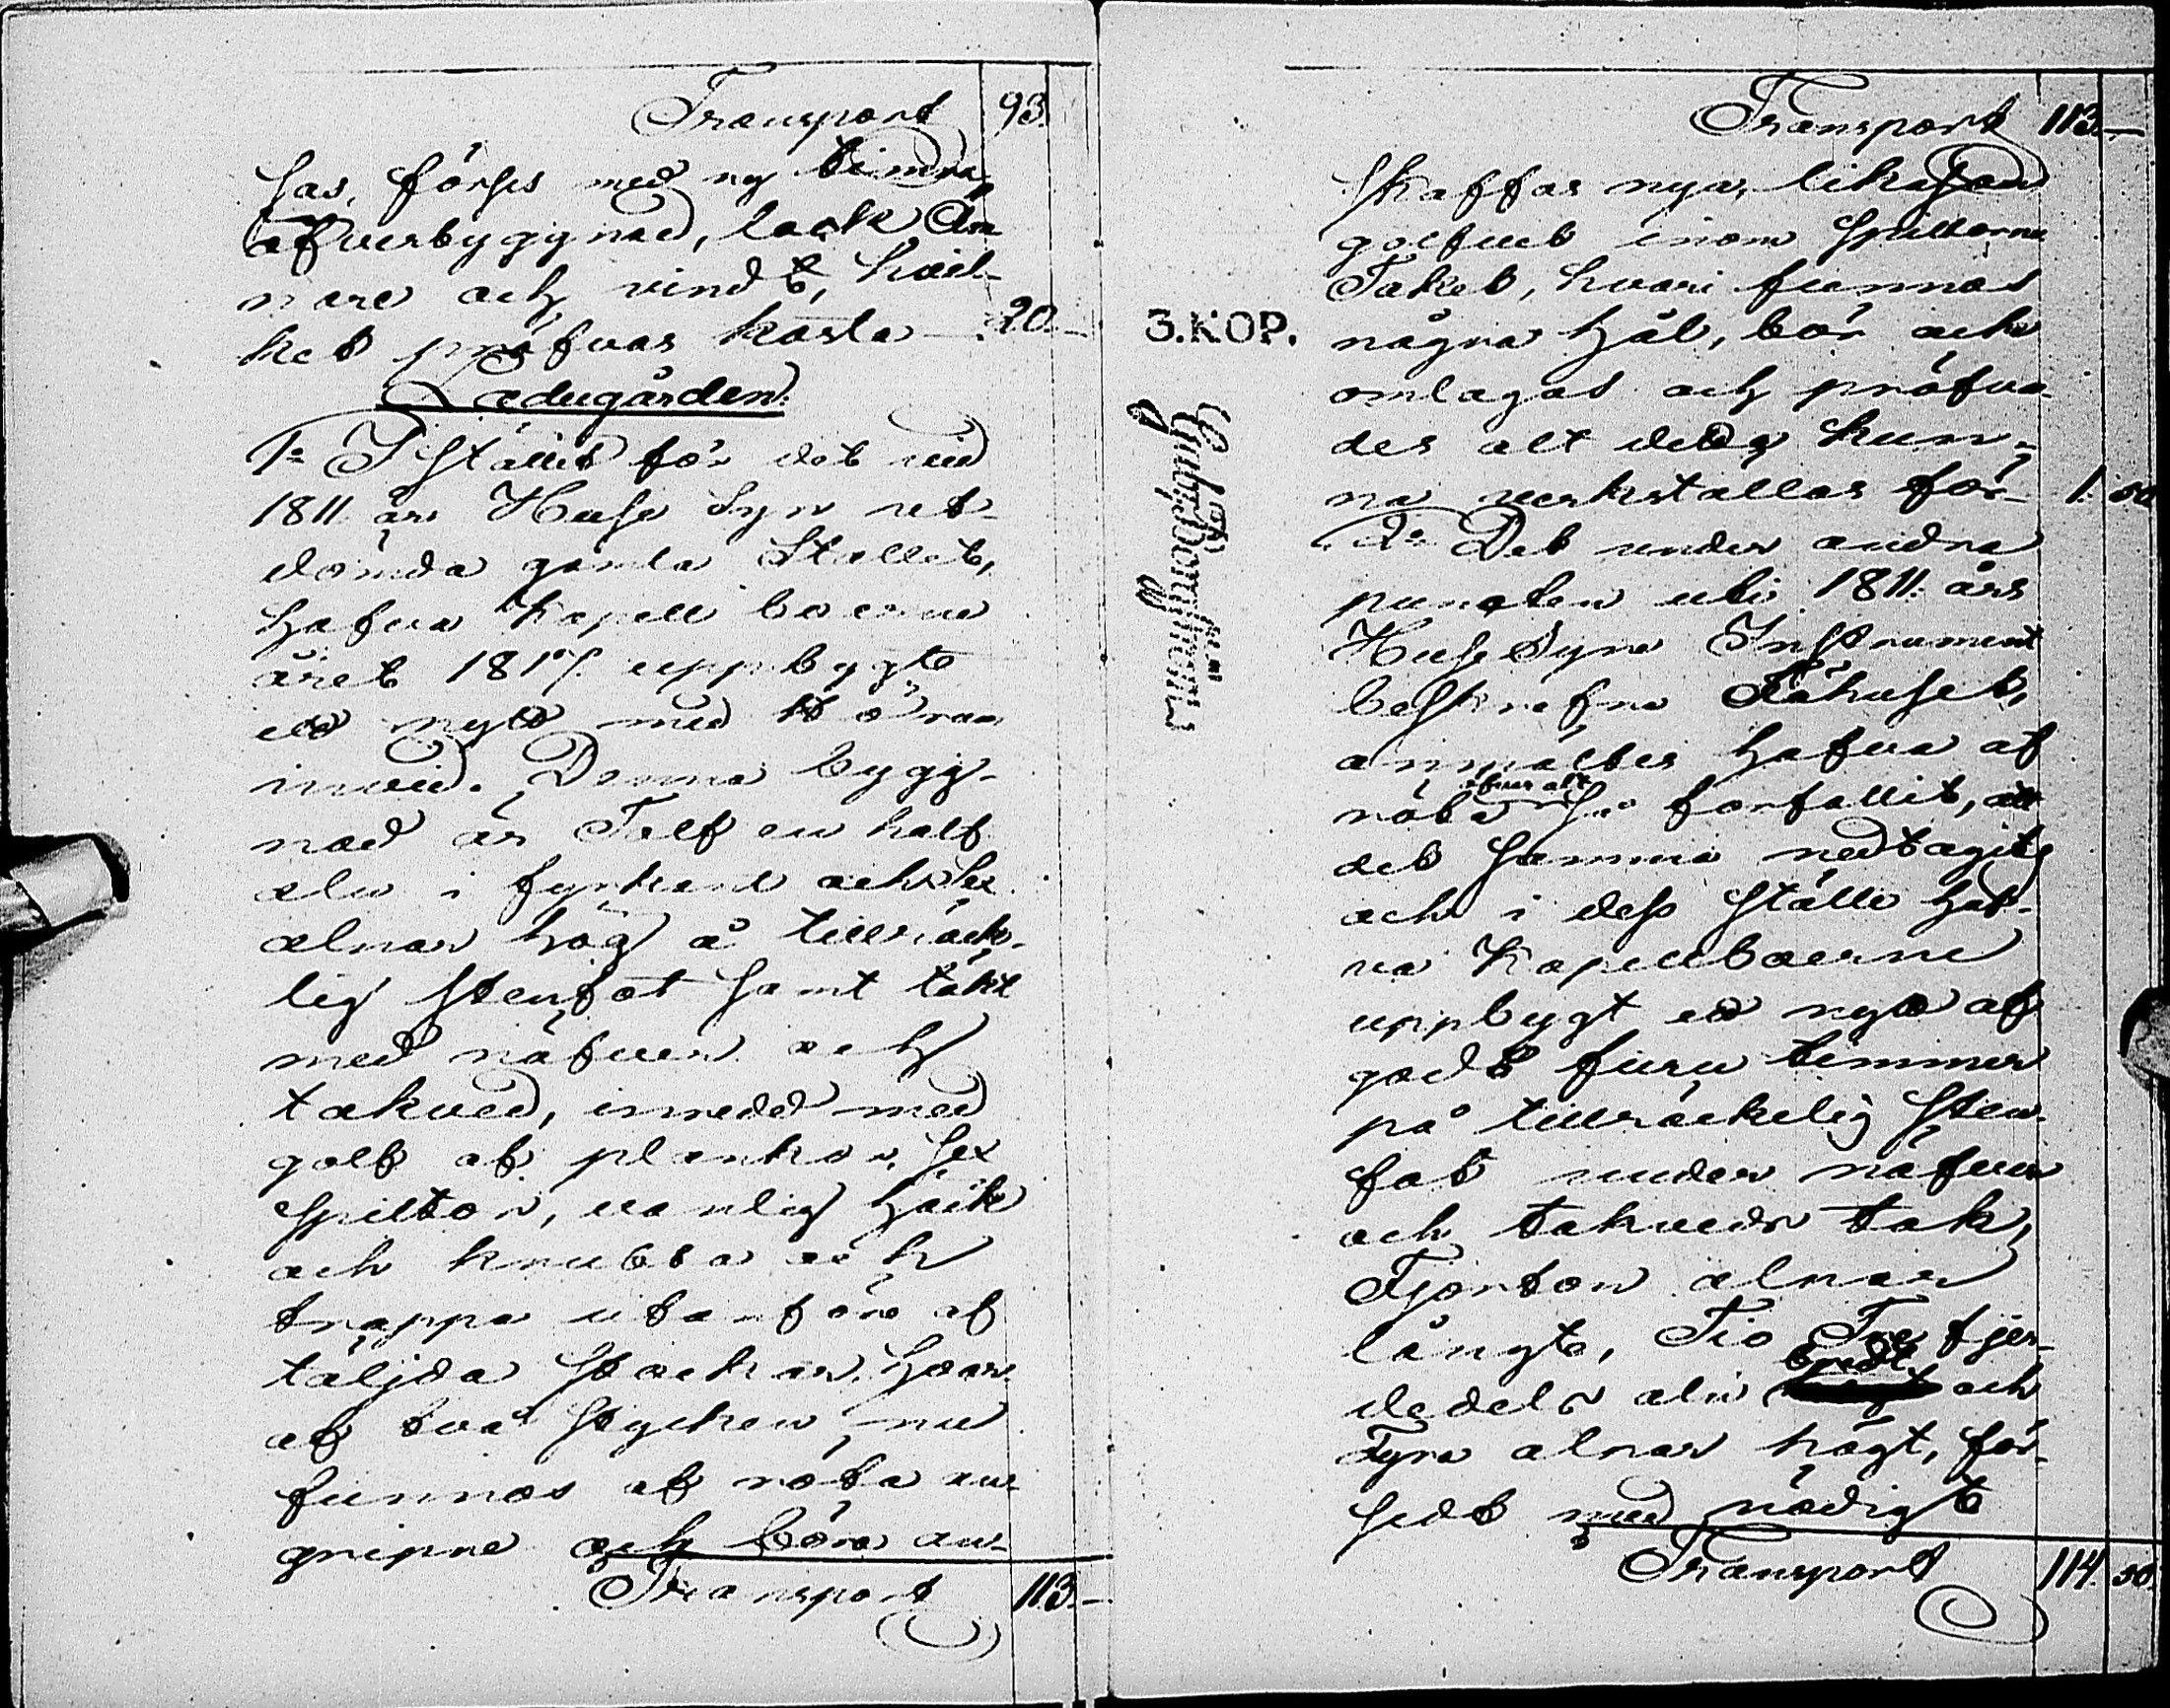 Transport 93.
sas, förses med ny timra
öfverbyggnad, lock
nare och vindt, hvil-
ket pröfvas kosta — 20.—
Ladugården.
1º I Stället för det vid
1811 års Huse Syn ut-
dömda gamla Stallet,
hafva Kapell boerne
året 1817. uppbygt
ett nytt med
invid. Denna bygg-
nad är Tolf en half
aln i fyrkant och sex
alnar hög å tillräck-
lig Stenfot samt täkt
med näfver och
takved, inredd med
golf af plankor, sex
Spiltor, vanlig häck
och krubba och
trappa utanföre af
täljda Stockar, hvar-
af två Stycken nu
funnos af röta an-
gripne och böra an-
Transport 113.—
Transport 113.—
Skaffas nya, likasom
golfvet inom Spiltorne
Taket, hvari funnos
3.KOP. några hål, bör ock
omlagas och pröfva-
des alt detta kun-
na verkställas för — 1. 50
2º Det under andra
puncten uti 1811. års
Huse Syns Instrument
beskrefne Fähuset,
anmältes hafva af
öfver alt
röta så förfallit, att
det samma nedtagits
och i dess ställe haf-
va Kapellboerne
uppbygt ett nytt af
godt furu timmer
på tillräckelig Sten-
fot under näfver
och takveds tak,
Fjorton alnar
långt, Tio Tre fjer-
bredt
dedels aln och
Fyra alnar högt, för-
sedt med nödigt
Transport 114. 50.